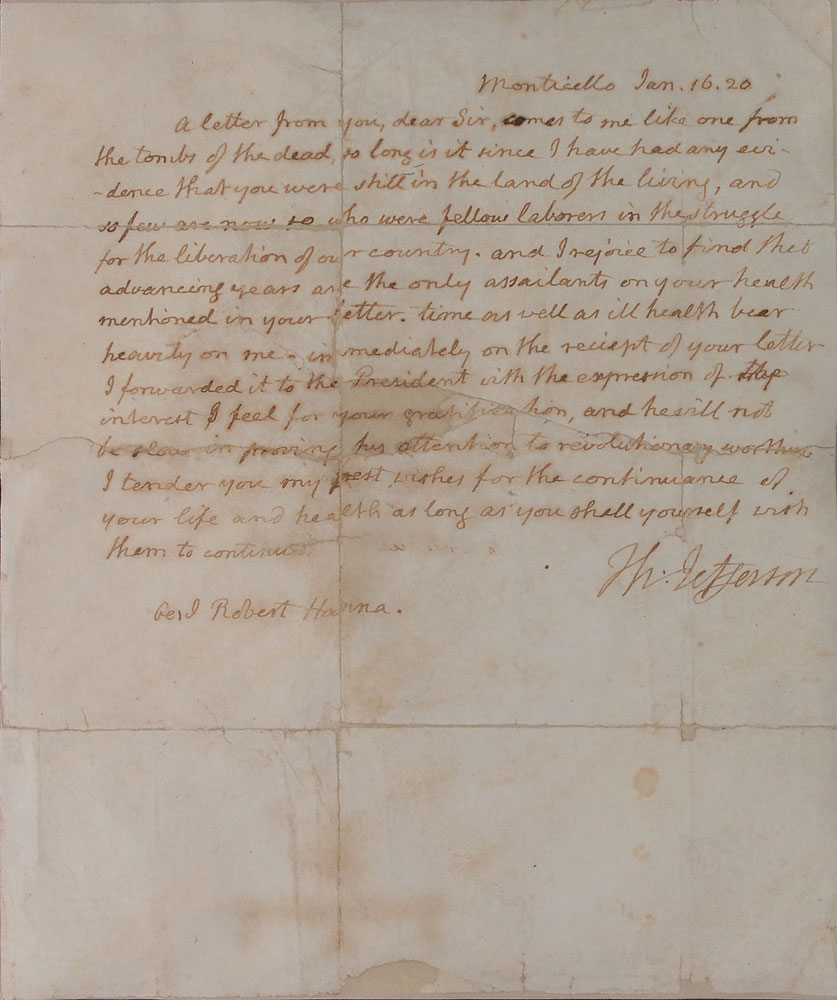 Monticello Jan. 16. 20
A letter from you, dear Sir, comes to me like one from
the tombs of the dead, so long is it since I have had any evi-
-dence that you were still in the land of the living, and
so few are now so who were fellow laborers in the struggle
for the liberation of our country. and I rejoice to find that
advancing years are the only assailants on your health
mentioned in your letter. time as well as ill health bear
heavily on me. immediately on the reciept of your letter
I forwarded it to the President with the expression of the
interest I feel for your gratification, and he will not
be slow in proving his attention to revolutionary worthies
I tender you my best wishes for the continuance of
your life and health as long as you shall yourself wish
them to continue.
Th: Jefferson
Genl Robert Hanna.